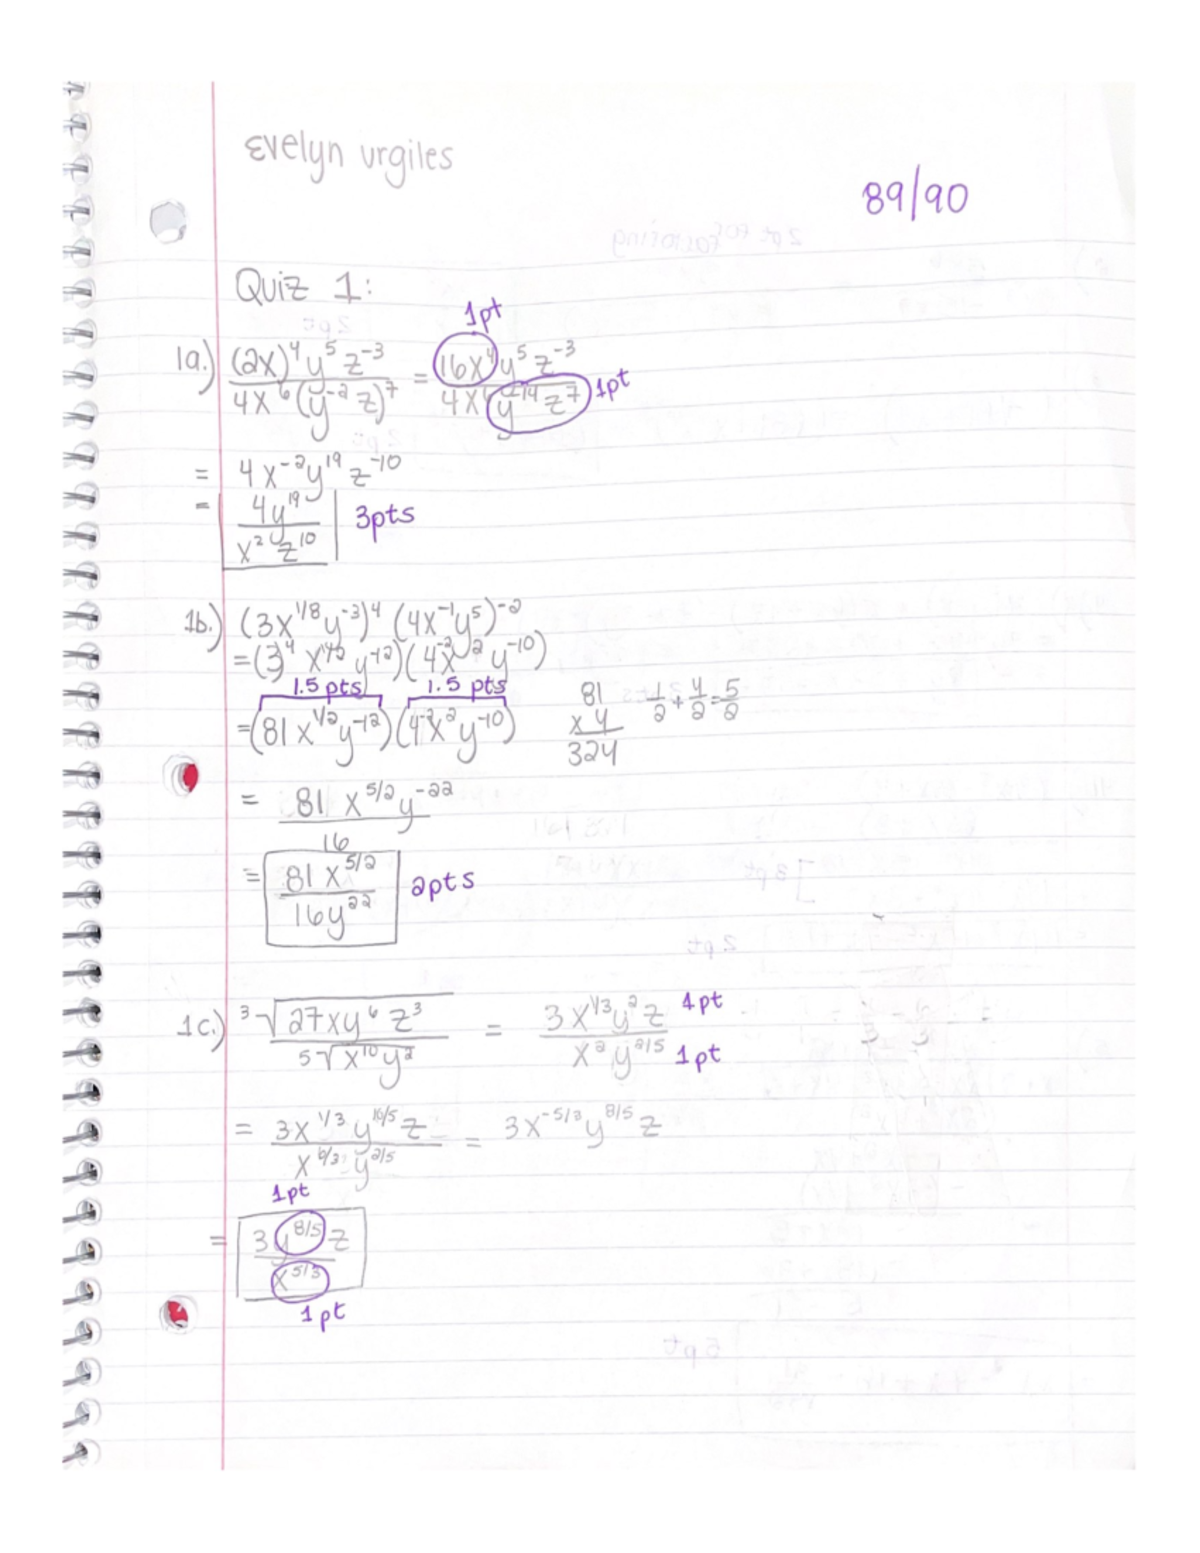 Evelyn urgiles
89/90
Quiz 1:
1pt
1a.) (2x)⁴y⁵z⁻³ / 4x⁶(y⁻²z)⁷ = 16x⁴y⁵z⁻³ / 4x⁶y⁻¹⁴z⁷ 1pt
= 4x⁻²y¹⁹z⁻¹⁰
= 4y¹⁹ / x²z¹⁰ 3pts
1b.) (3x^1/8 y⁻³)⁴ (4x⁻¹y⁵)⁻²
= (3⁴ x^4/8 y⁻¹²)(4⁻²x² y⁻¹⁰)
1.5 pts 1.5 pts
= (81x^1/2 y⁻¹²)(4⁻²x²y⁻¹⁰) 81 x 4 324 1/2 + 4/2 = 5/2
= 81x^5/2 y⁻²² / 16
= 81x^5/2 / 16y²² 2pts
1c.) ³√27xy⁶z³ / ⁵√x¹⁰y² = 3x^1/3 y²z 1pt / x²y^2/5 1pt
= 3x^1/3 y^10/5 z / x^6/3 y^2/5 = 3x^-5/3 y^8/5 z
1pt
= 3y^8/5 z / x^5/3
1pt